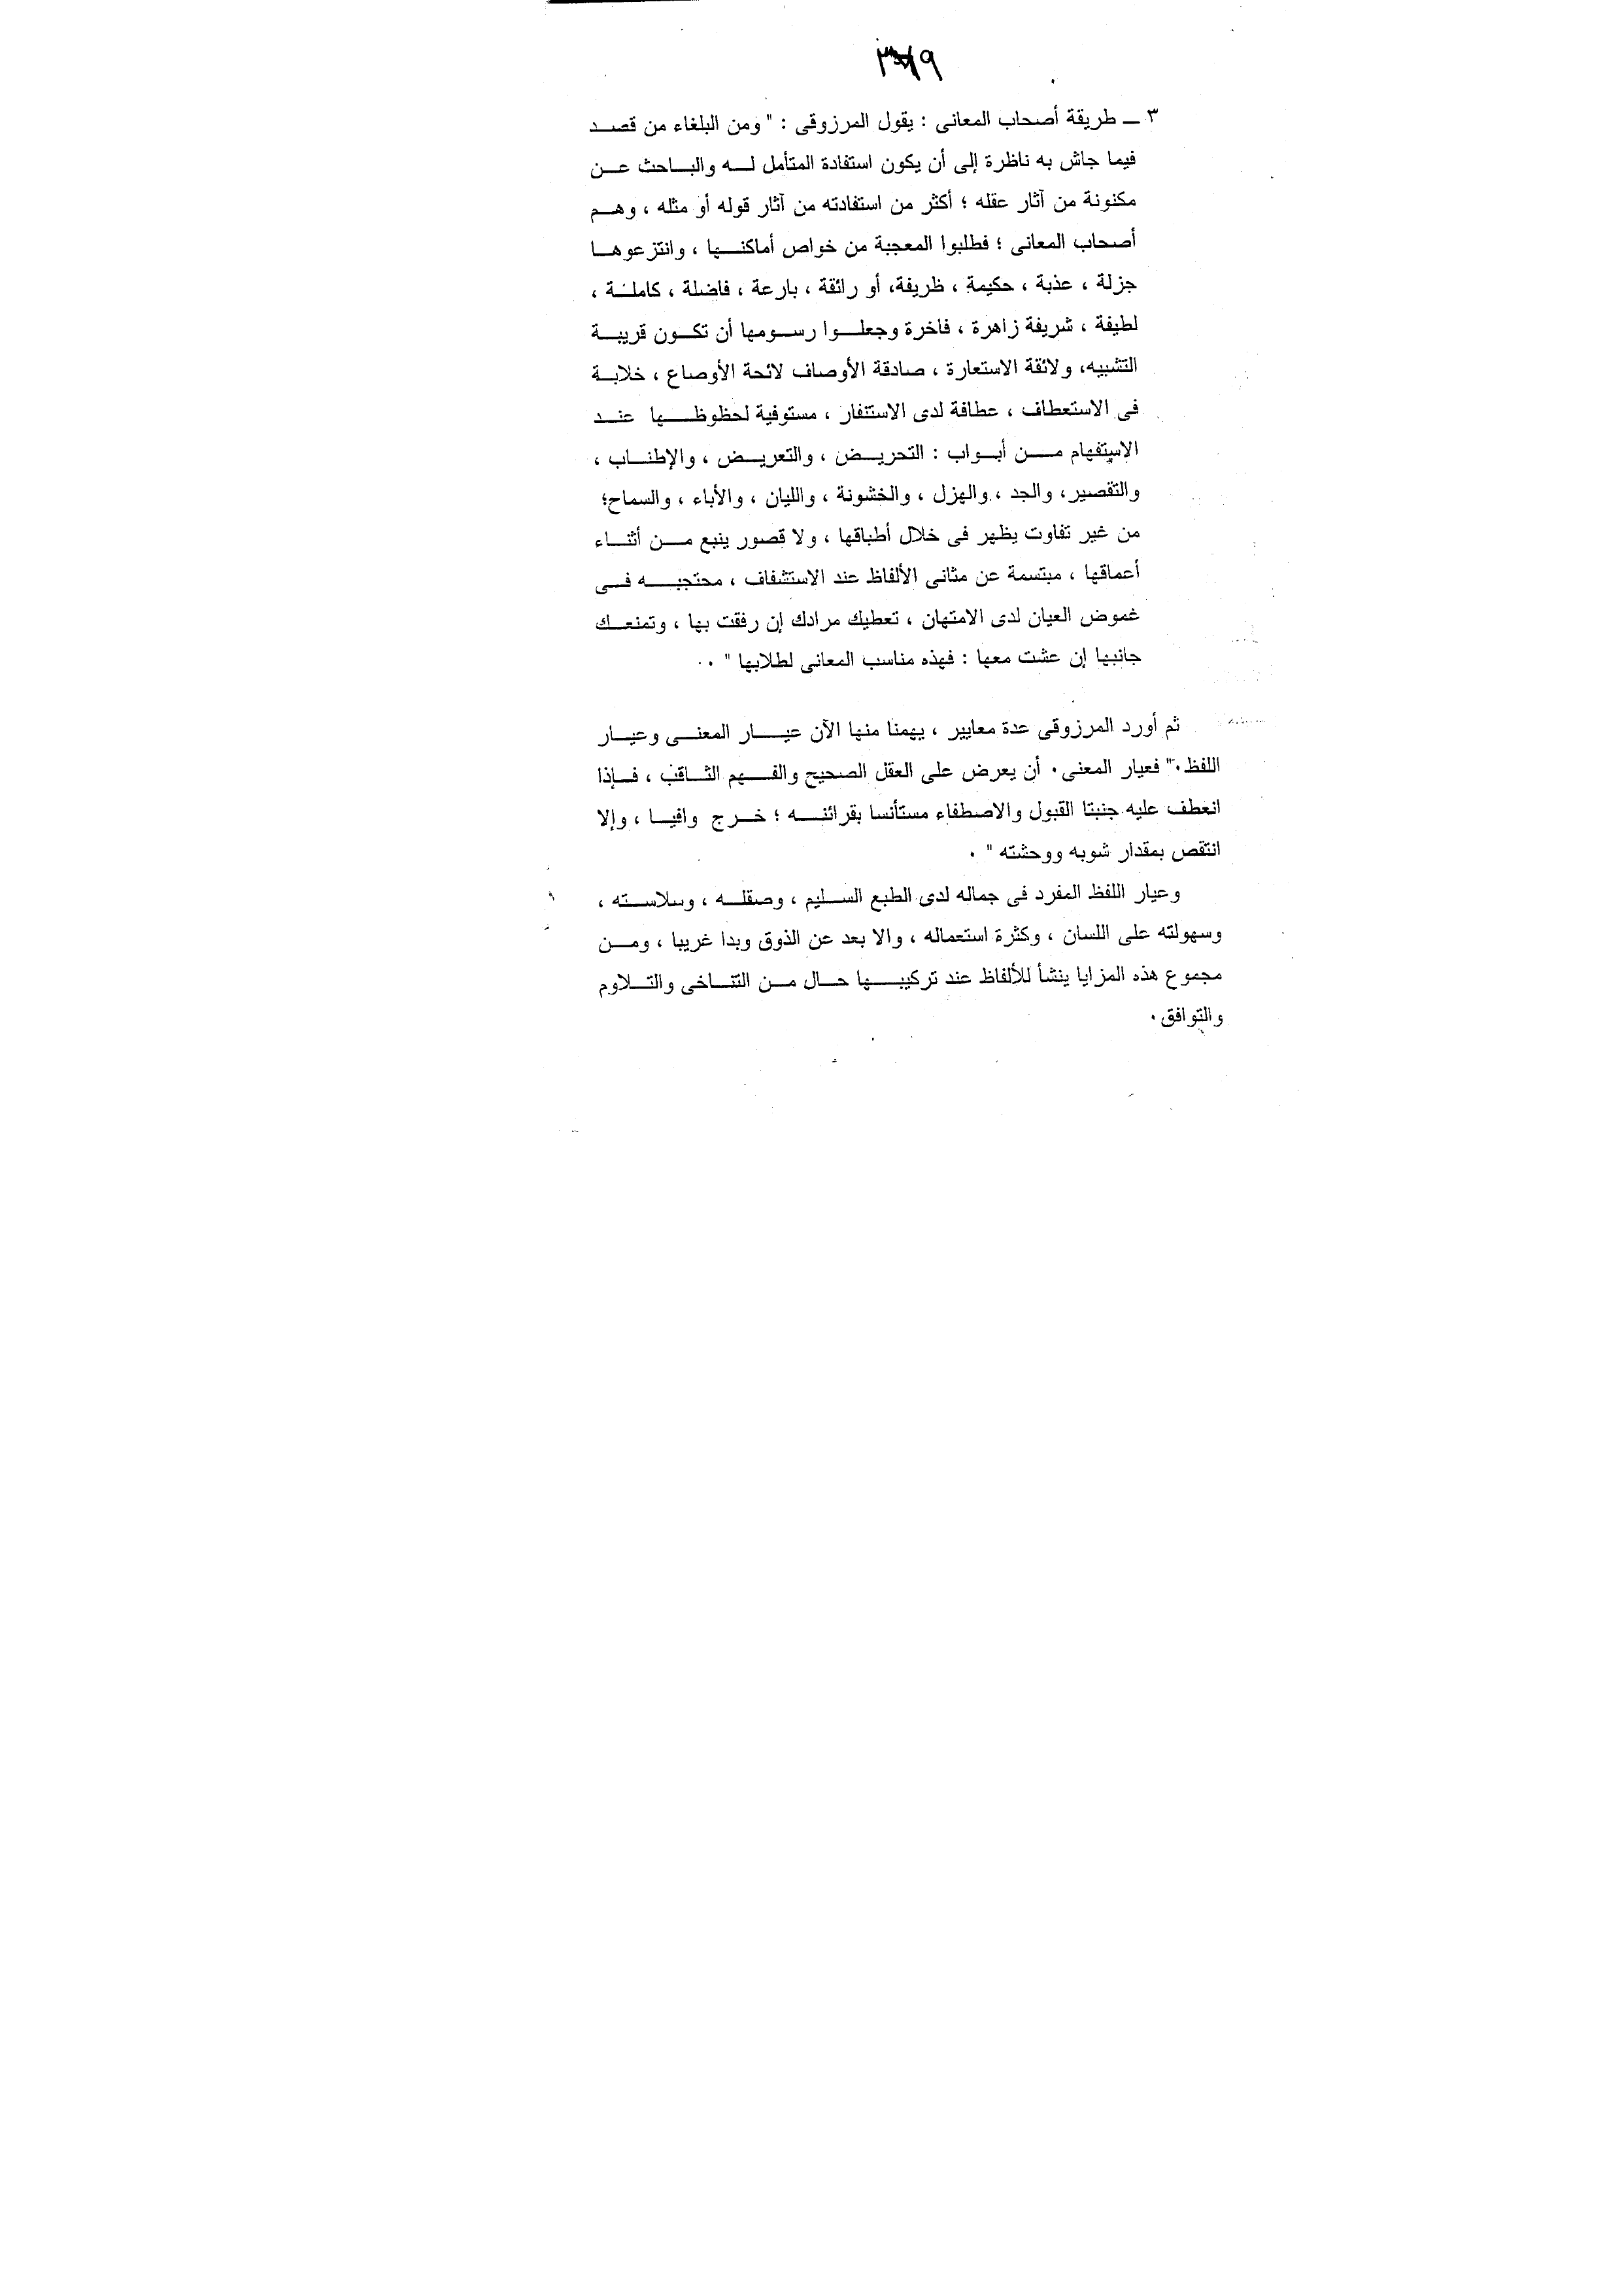 ٣ ــ طريقة أصحاب المعانى : يقول المرزوقى : " ومن البلغاء من قصد
فيما جاش به ناظرة إلى أن يكون استفادة المتأمل له والباحث عن
مكنونة من آثار عقله ؛ أكثر من استفادته من آثار قوله أو مثله ، وهم
أصحاب المعانى ؛ فطلبوا المعجبة من خواص أماكنها ، وانتزعوها
جزلة ، عذبة ، حكيمة ، ظريفة، أو رائقة ، بارعة ، فاضلة ، كاملة ،
لطيفة ، شريفة زاهرة ، فاخرة وجعلوا رسومها أن تكون قريبة
التشبيه، ولائقة الاستعارة ، صادقة الأوصاف لائحة الأوصاع ، خلابة
فى الاستعطاف ، عطافة لدى الاستنفار ، مستوفية لحظوظها عند
الاستفهام من أبواب : التحريض ، والتعريض ، والإطناب ،
والتقصير، والجد ، والهزل ، والخشونة ، والليان ، والأباء ، والسماح؛
من غير تفاوت يظهر فى خلال أطباقها ، ولا قصور ينبع من أثناء
أعماقها ، مبتسمة عن مثانى الألفاظ عند الاستشفاف ، محتجبه فى
غموض العيان لدى الامتهان ، تعطيك مرادك إن رفقت بها ، وتمنعك
جانبها إن عشت معها : فهذه مناسب المعانى لطلابها " ٠٠
ثم أورد المرزوقى عدة معايير ، يهمنا منها الآن عيار المعنى وعيار
اللفظ٠" فعيار المعنى ٠ أن يعرض على العقل الصحيح والفهم الثاقب ، فإذا
انعطف عليه جنبتا القبول والاصطفاء مستأنسا بقرائنه ؛ خرج وافيا ، وإلا
انتقص بمقدار شوبه ووحشته " ٠
وعيار اللفظ المفرد فى جماله لدى الطبع السليم ، وصقله ، وسلاسته ،
وسهولته على اللسان ، وكثرة استعماله ، والا بعد عن الذوق وبدا غريبا ، ومن
مجموع هذه المزايا ينشأ للألفاظ عند تركيبها حال من التتاخى والتلاوم
والتوافق ٠